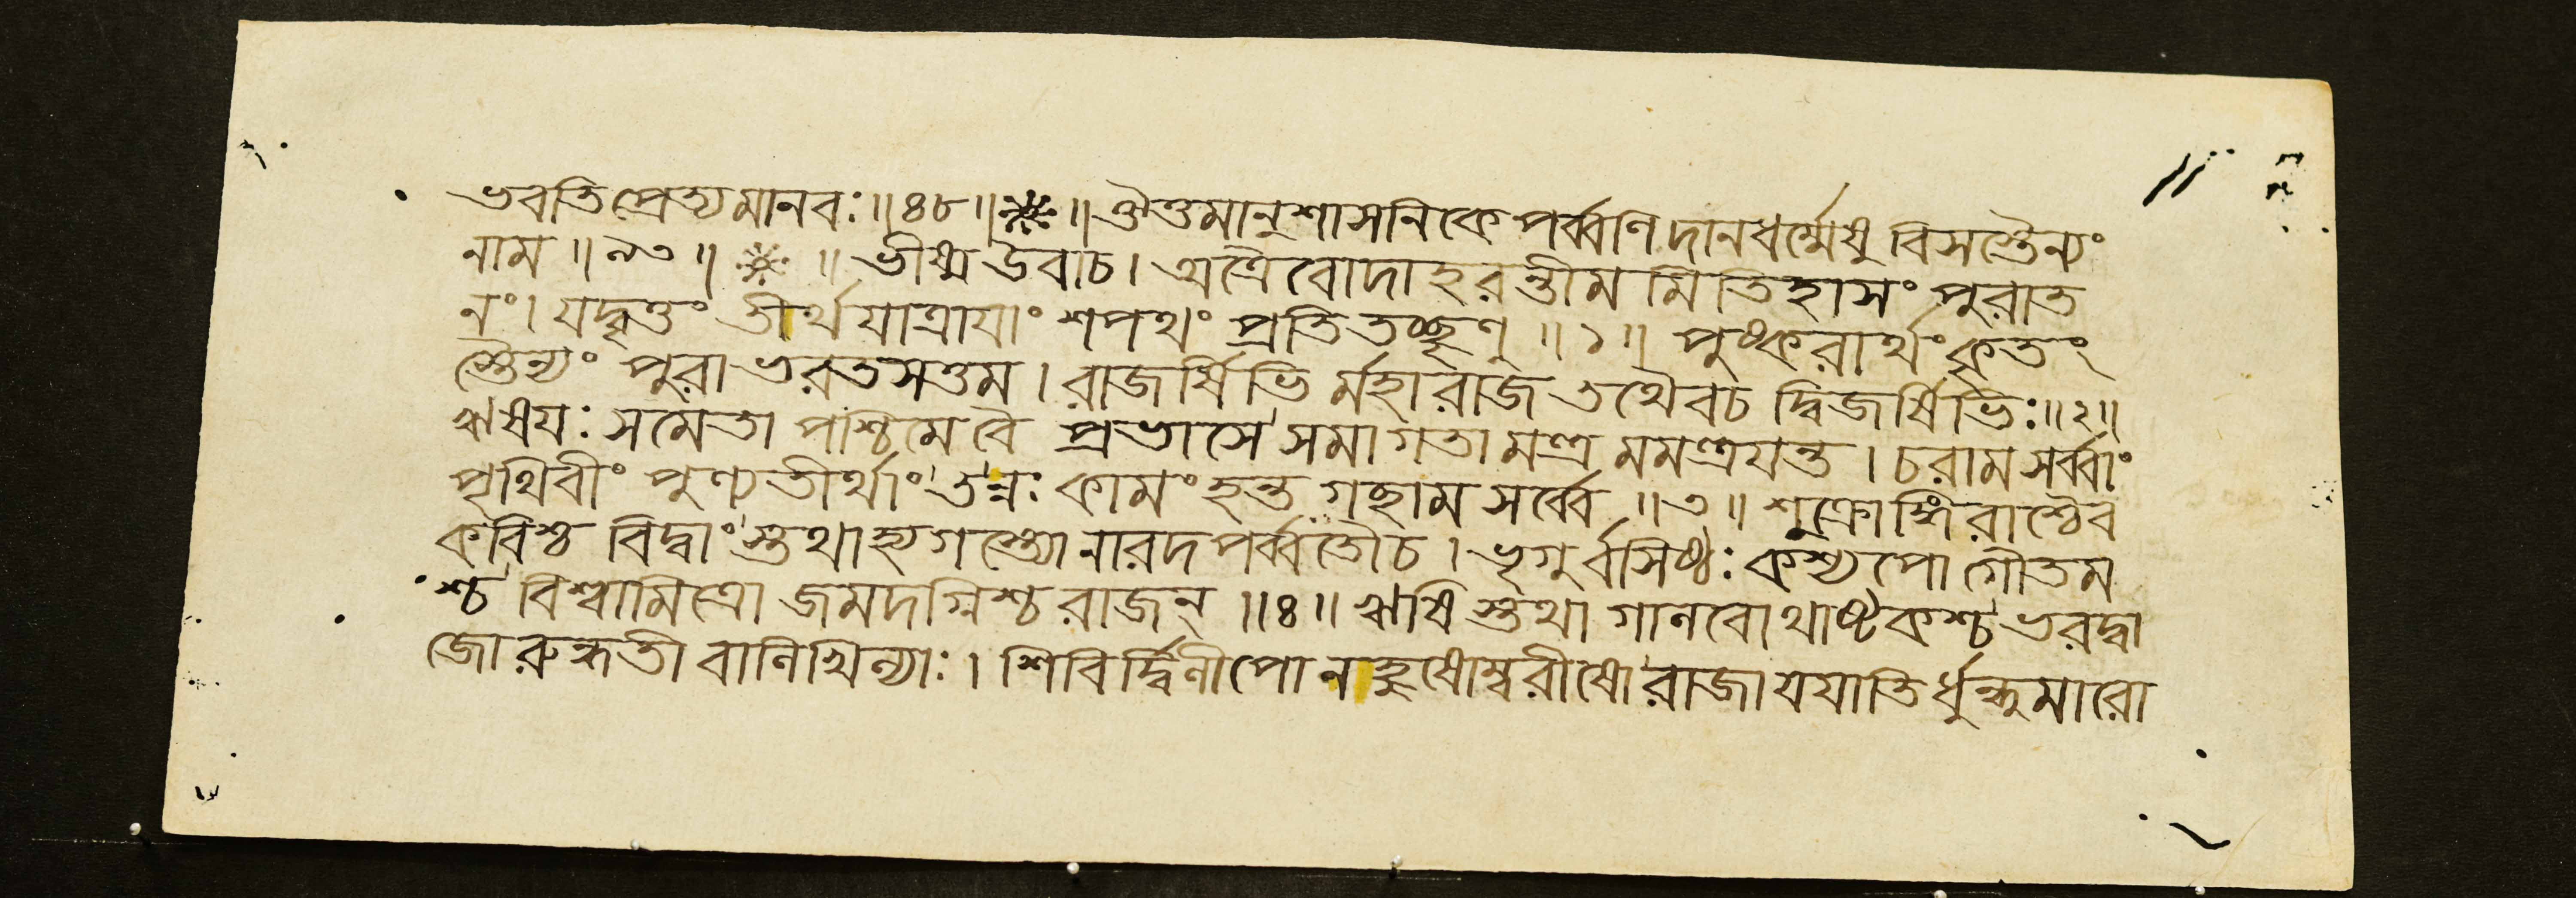 ভবতি প্রেত্য মানবঃ ॥ ৪৮ ॥ ॥ ঔত্তমানুশাসনিকে পর্ব্বণি দানধর্ম্মেষু বিসস্তৈন্যং
নাম ॥ ৯৩ ॥ ॥ ভীষ্ম উবাচ । অত্রৈবোদাহরন্তীমমিতিহাসং পুরাত
নং । যদ্বৃত্তং তীর্থযাত্রাযাং শপথং প্রতি তচ্ছৃণু ॥ ১ ॥ পুষ্করার্থং কৃতং
স্তৈন্যং পুরা ভরতসত্তম । রাজর্ষিভির্মহারাজ তথৈবচ দ্বিজর্ষিভিঃ ॥ ২ ॥
ঋষযঃ সমেতা পশ্চিমে বৈ প্রভাসে সমাগতা মন্ত্রমমন্ত্রযন্ত । চরাম সর্ব্বাং
পৃথিবীং পুণ্যতীর্থাং তন্নঃ কামং হন্ত গছাম সর্ব্বে ॥ ৩ ॥ শুক্রোঙ্গিরাশ্চৈব
কবিশ্চ বিদ্বাংস্তথাহ্যগস্ত্যো নারদপর্ব্বতৌচ । ভৃগুর্বসিষ্ঠঃ কশ্যপো গৌতম
শ্চ বিশ্বামিত্রো জমদগ্নিশ্চ রাজন্ ॥ ৪ ॥ ঋষিস্তথা গানবোথাষ্টকশ্চ ভরদ্বা
জোরুন্ধতী বানিখিন্যাঃ । শিবির্দ্দিনীপো নাহুষোম্বরীষো রাজা যযাতির্ধুন্ধুমারো